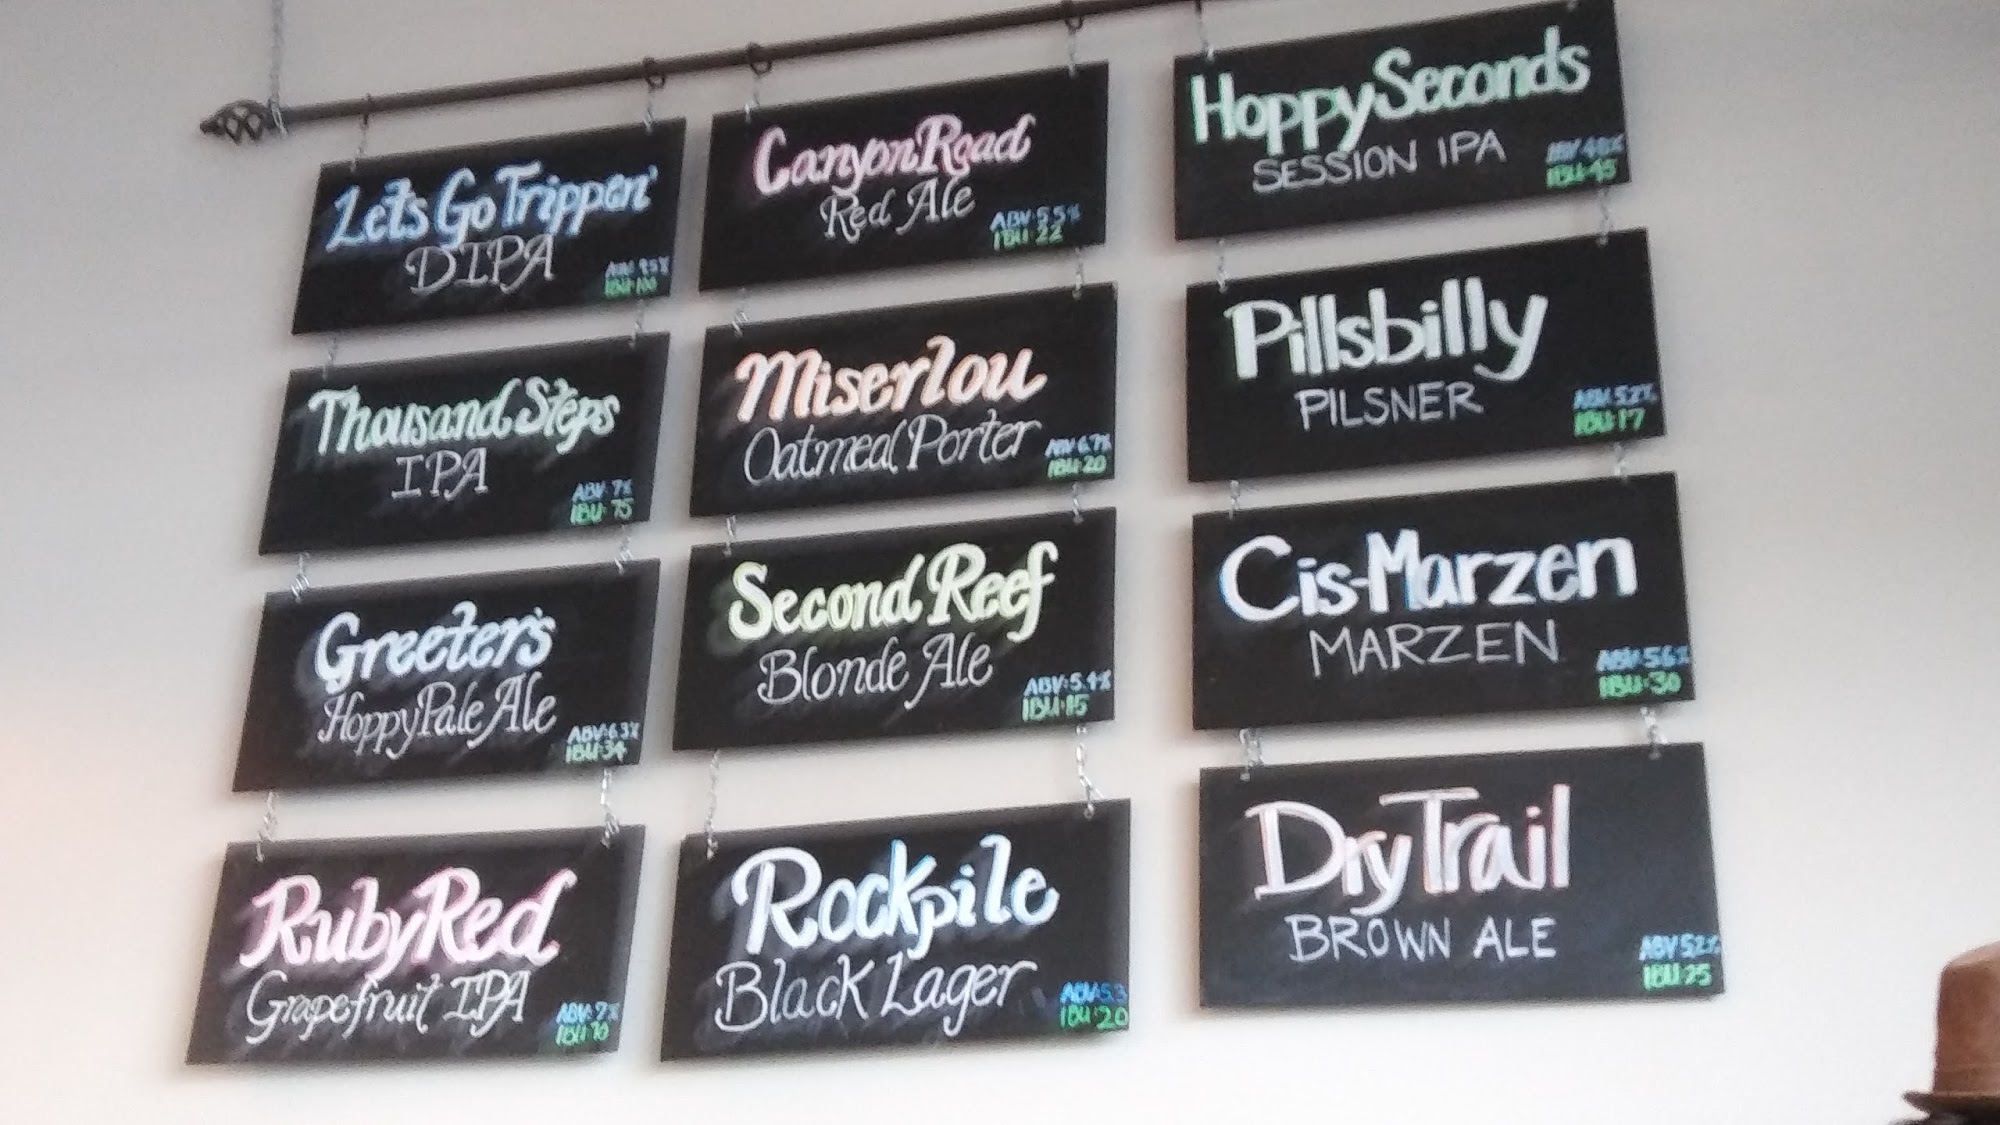 Let's Go Trippen'
DIPA
ABV: 9.5%
IBU: 100
Thousand Steps
IPA
ABV: 7%
IBU: 75
Greeter's
Hoppy Pale Ale
ABV: 6.3%
IBU: 34
Ruby Red
Grapefruit IPA
ABV: 7%
IBU: 70
Canyon Road
Red Ale
ABV: 5.5%
IBU: 22
Miserlou
Oatmeal Porter
ABV: 6.7%
IBU: 20
Second Reef
Blonde Ale
ABV: 5.4%
IBU: 15
Rockpile
Black Lager
ABV: 5.3
IBU: 20
Hoppy Seconds
SESSION IPA
ABV: 4.8%
IBU: 45
Pillsbilly
PILSNER
ABV: 5.2%
IBU: 17
Cis-Marzen
MARZEN
ABV: 5.6%
IBU: 30
Dry Trail
BROWN ALE
ABV: 5.2%
IBU: 25